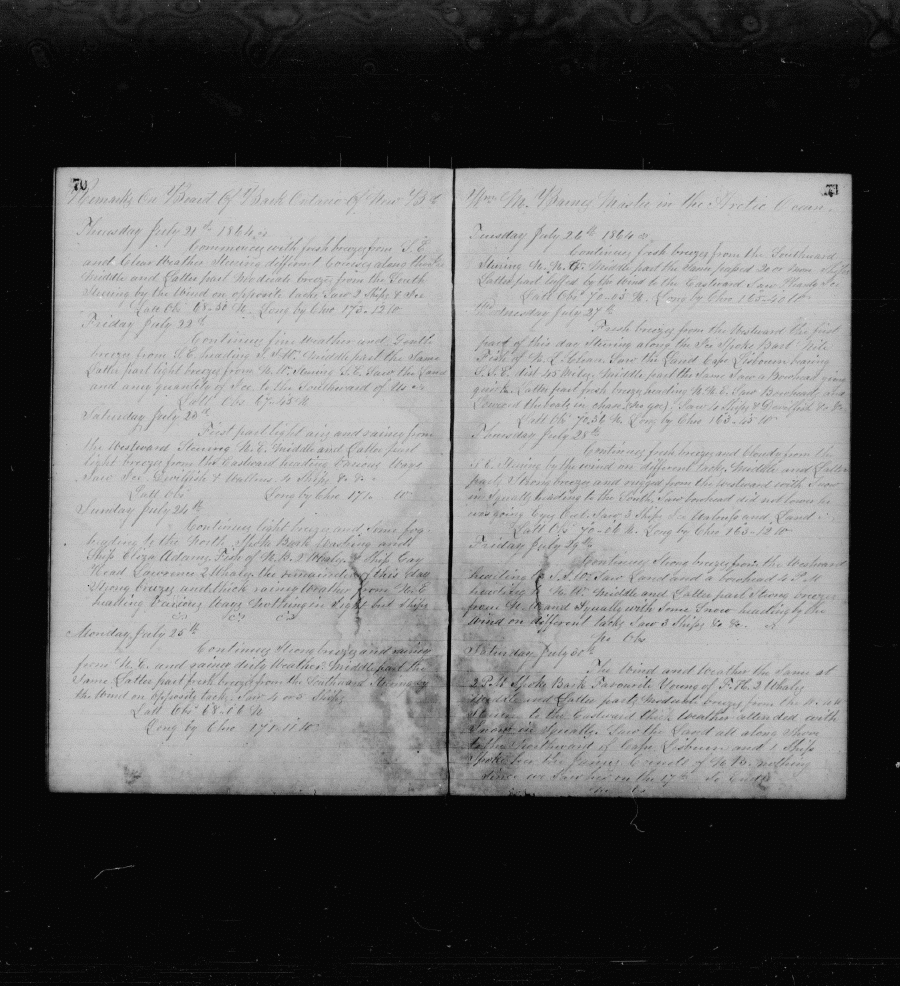 70
Remarks On Board Of Bark Oct of New Bd
Thursday July 21st 1864
Commences with fresh breeze from S.E.
and Clear Weather Stearing different Courses along the Ice
Middle and Latter part Moderate breeze from the South
Stearing by the Wind on opposite tacks Saw 2 Ships & Ice
Latt Obs 68-30 N. Long by Chro 173-12
Friday July 22nd
Continues fine Weather and Gentle
breeze from S.E. heading S.S.W. Middle part the Same
Latter part light breeze from N.W. Stearing S.E. Saw the Land
and any quantity of Ice to the Southward of Us
Latt Obs 67-45 N
Saturday July 23rd
First part light airs and rainey from
the Westward Stearing N.E. Middle and Latter part
light breeze from the Eastward heading Various Ways
Saw Ice Devilfish & Wallrus 4 Ships &c &c
Latt Obs Long by Chro 171
Sunday July 24th
Continues light breeze and Some fog
heading to the North Spoke Bark and
Ship Eliza Adams Fish of N.B. 2 Whales & Ship Gay
Head Lawrence 2 Whales the remainder of this day
Strong breezes and thick rainey Weather from N.E.
heading Various Ways Nothing in Sight but Ships
Monday July 25th
Continues Strong breezes and rainey
from N.E. and rainey dirty Weather. Middle part the
Same Latter part fresh breeze from the Southward Stearing
the Wind on opposite tacks Saw 4 or 5 Ships
Latt Obs 68-16 N
Long by Chro 171-11
71
Wm M. Barnes Master in the Arctic Ocean
Tuesday July 26th 1864
Continues fresh breezes from the Southward
Stearing N.N.E. Middle part the Same passed 20 or more Ships
Latter part luffed by the Wind to the Eastward Saw Plenty Ice
Latt Obs 70-05 N. Long by Chro 165-40
Wednesday July 27th
Fresh breezes from the Westward the first
part of this day Stearing along the Ice Spoke Bark Nile
Fish of N.L. Clean. Saw the Land Cape Lisbourn bearing
S.S.E. dist 45 Miles. Middle part the Same Saw a Bowhead going
quick. Latter part fresh breeze heading N.N.E. Saw Bowheads
Lowered the boats in chase (No go). Saw Ships &c &c
Latt Obs N. Long by Chro 163-45
Thursday July 28th
Continues fresh breeze and Cloudy from the
S.E. Stearing by the wind on different tacks. Middle and Latter
part Strong breezes and rugged from the westward with Snow
in Squalls heading to the South, Saw bowhead did not lower he
was going Eyes Out. Saw 3 Ships Ice Walruss and Land
Latt Obs 70-06 N. Long by Chro 163-12
Friday July 29th
Continues Strong breeze from the Westward
heading S.S.W. Saw Land and a bowhead 4 P.M.
heading N.W. Middle and Latter part Strong breezes
from N.W. and Squally with Some Snow heading by the
Wind on different tacks Saw 3 Ships &c &c
No Obs
Saturday July 30th
The Wind and Weather the Same at
2 P.M. Spoke Bark Favourite Young of F.H. 2 Whales
Middle and Latter part Moderate breeze from the
Stearing to the Eastward thick Weather attended with
Snow in Squalls. Saw the Land all along Shore
to the Northward of Cape Lisburn and 1 Ship
Spoke of N.B. nothing
Since we Saw her on the 17th So Ends